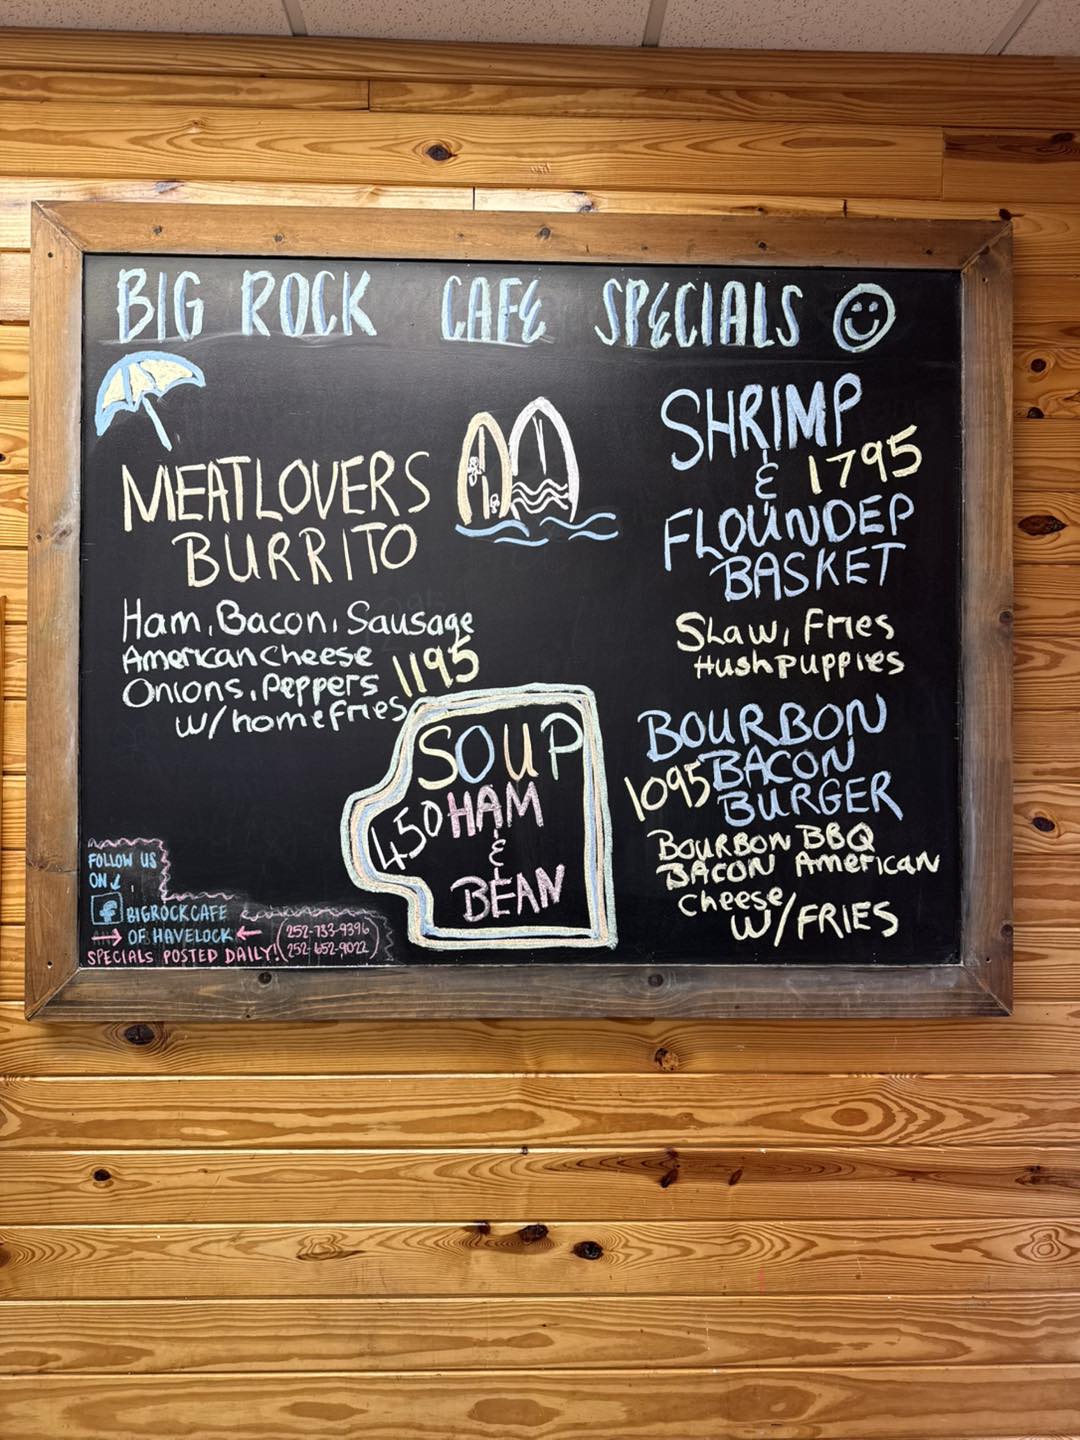 BIG ROCK CAFE SPECIALS
MEATLOVERS
BURRITO
Ham, Bacon, Sausage
American Cheese
Onions, Peppers 1195
w/homefries
SOUP
450 HAM
&
BEAN
SHRIMP
& 1795
FLOUNDER
BASKET
Slaw, Fries
Hushpuppies
BOURBON
1095 BACON
BURGER
BOURBON BBQ
BACON American
cheese
W/FRIES
FOLLOW US
ON
f BIGROCKCAFE
OF HAVELOCK
SPECIALS POSTED DAILY!
252-733-9396
252-652-9022